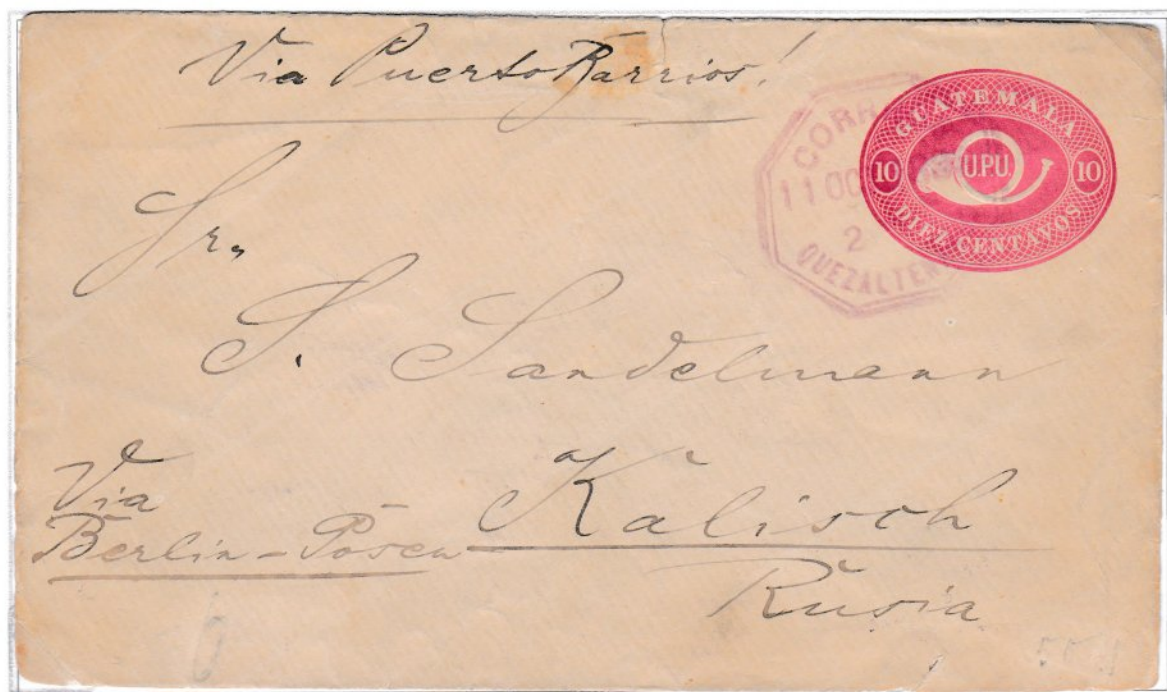 Via Puerto Barrios!
CORR
11 OC
2
QUEZALTEN
GUATEMALA
10 U.P.U. 10
DIEZ CENTAVOS
Sr.
S. Sandelmann
Via
Berlin-Posen
Kalisch
Rusia